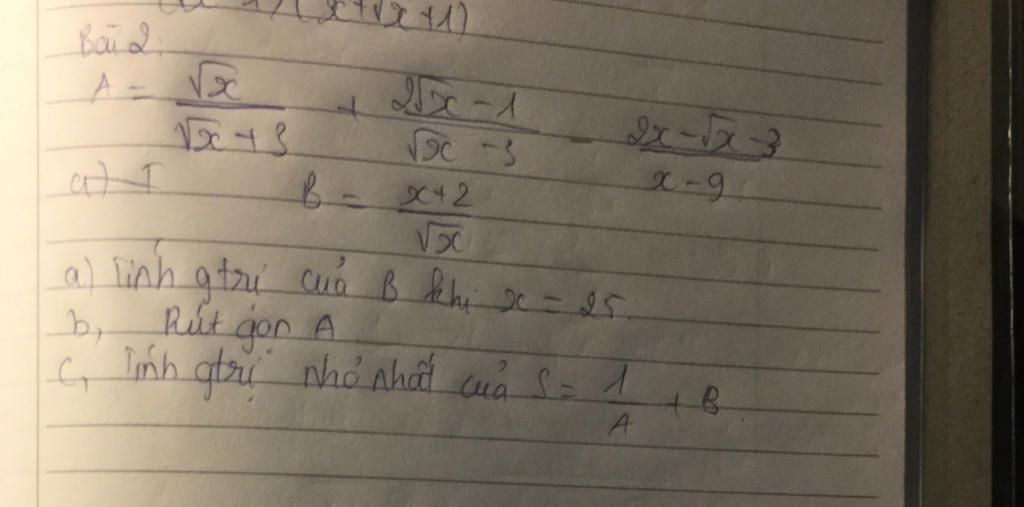 x+√x+1)
Bài 2:
A = √x/(√x+3) + (2√x-1)/(√x-3) - (2x-√x-3)/(x-9)
B = (x+2)/√x
a) Tính gtrị của B khi x = 25.
b, Rút gọn A
c, Tính gtrị nhỏ nhất của S = 1/A + B